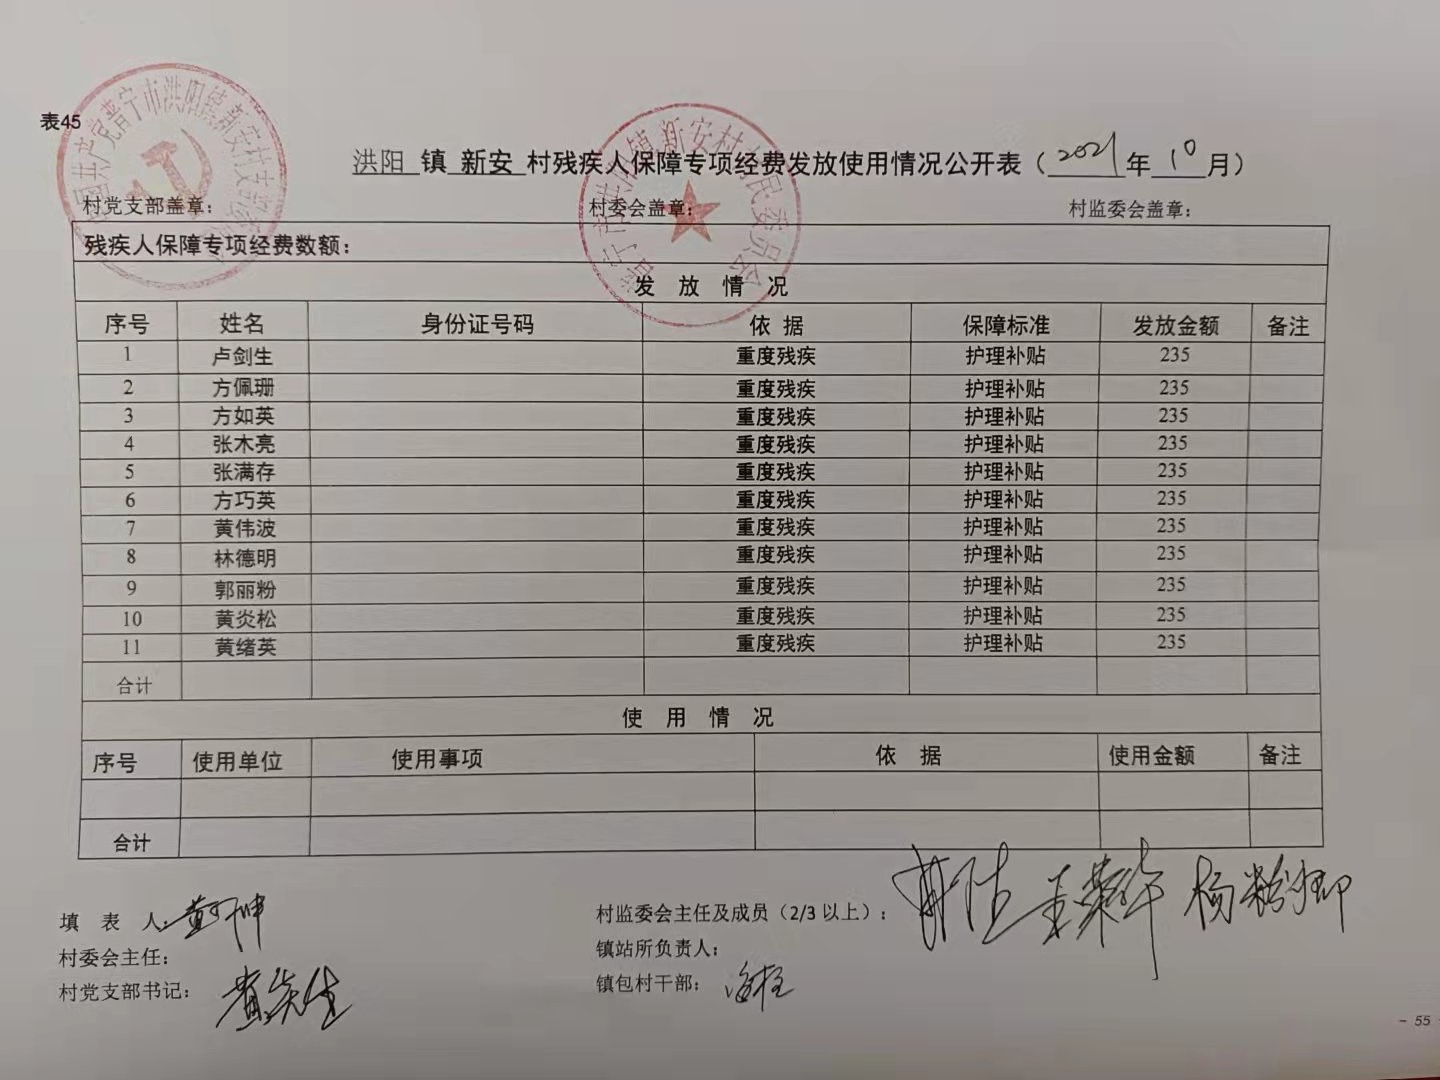 表45
洪阳 镇 新安 村残疾人保障专项经费发放使用情况公开表（2021年10月）
村党支部盖章： 村委会盖章： 村监委会盖章：
残疾人保障专项经费数额：
发 放 情 况
序号 姓名 身份证号码 依 据 保障标准 发放金额 备注
1 卢剑生 重度残疾 护理补贴 235
2 方佩珊 重度残疾 护理补贴 235
3 方如英 重度残疾 护理补贴 235
4 张木亮 重度残疾 护理补贴 235
5 张满存 重度残疾 护理补贴 235
6 方巧英 重度残疾 护理补贴 235
7 黄伟波 重度残疾 护理补贴 235
8 林德明 重度残疾 护理补贴 235
9 郭丽粉 重度残疾 护理补贴 235
10 黄炎松 重度残疾 护理补贴 235
11 黄绪英 重度残疾 护理补贴 235
合计
使 用 情 况
序号 使用单位 使用事项 依 据 使用金额 备注
合计
填 表 人： 村监委会主任及成员（2/3 以上）： 杨粉卿
村委会主任： 镇站所负责人：
村党支部书记： 镇包村干部：
- 55